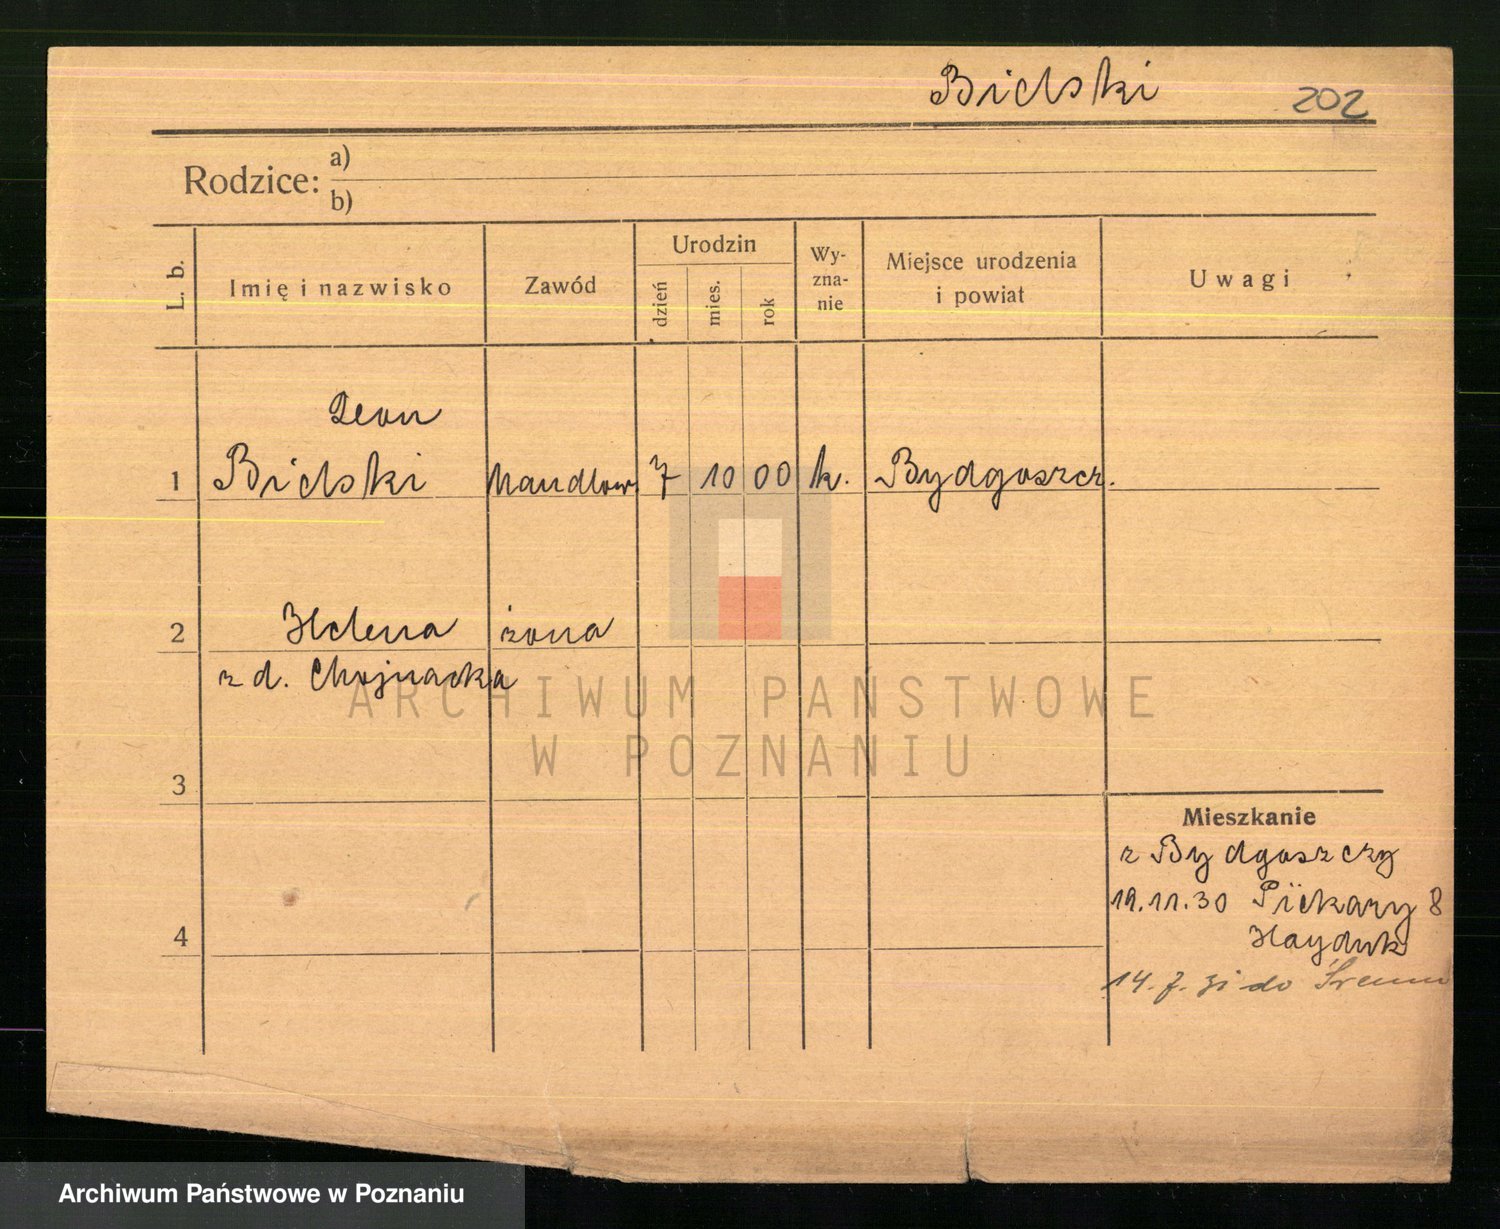 Bielski 202
Rodzice: a)
b)
L. b. Imię i nazwisko Zawód Urodzin dzień mies. rok Wy-zna-nie Miejsce urodzenia i powiat Uwagi
Leon
1 Bielski Handlow. 7 10 00 k. Bydgoszcz.
2 Helena żona
z d. Chojnacka
ARCHIWUM PAŃSTWOWE
W POZNANIU
3
Mieszkanie
z Bydgoszczy
19.11.30 Piekary 8
Hayduk
4
14. 7. 31 do Śremu
Archiwum Państwowe w Poznaniu